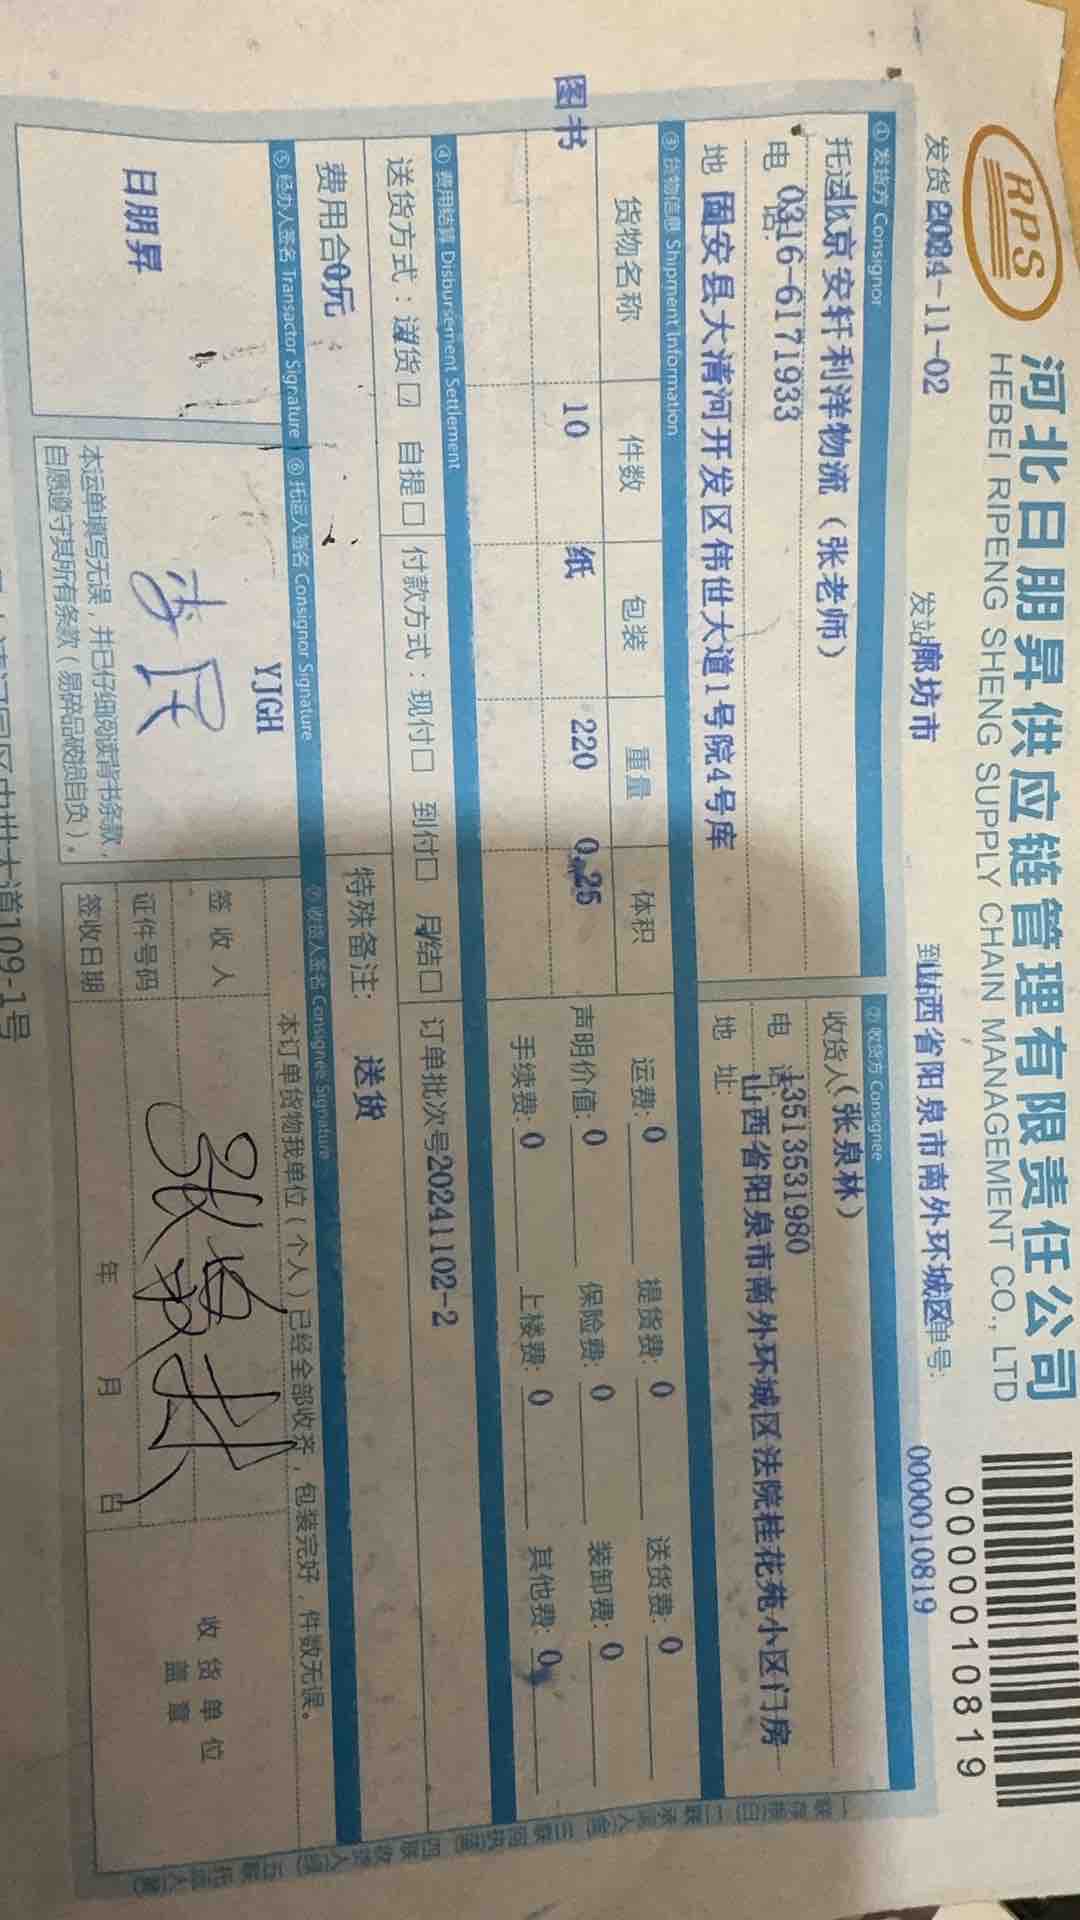 RPS
河北日朋昇供应链管理有限责任公司
HEBEI RIPENG SHENG SUPPLY CHAIN MANAGEMENT CO., LTD
0000010819
发货 2024-11-02 发站 廊坊市 到站 山西省阳泉市南外环城区 单号: 0000010819
① 发货方 Consignor
托运 北京安轩利洋物流（张老师）
电话: 0316-6171933
地 固安县大清河开发区伟世大道1号院4号库
② 收货方 Consignee
收货人 （张泉林）
电话: 13513531980
地址: 山西省阳泉市南外环城区法院桂花苑小区门房
③ 货物信息 Shipment Information
货物名称 件数 包装 重量 体积
图书 10 纸 220 0.25
运费: 0 提货费: 0 送货费: 0
声明价值: 0 保险费: 0 装卸费: 0
手续费: 0 上楼费: 0 其他费: 0
④ 费用结算 Disbursement Settlement
送货方式：送货☑ 自提□ 付款方式：现付□ 到付□ 月结□ 订单批次号20241102-2
费用合 0元
特殊备注: 送货
⑤ 经办人签名 Transactor Signature
日朋昇
⑥ 托运人签名 Consignor Signature
YJGH
本运单填写无误，并已仔细阅读背书条款，
自愿遵守其所有条款（易碎品破损自负）。
⑦ 收货人签名 Consignee Signature
本订单货物我单位（个人）已经全部收齐，包装完好，件数无误。
签收人
证件号码
签收日期 年 月 日
收货单位
盖章
大道109-1号